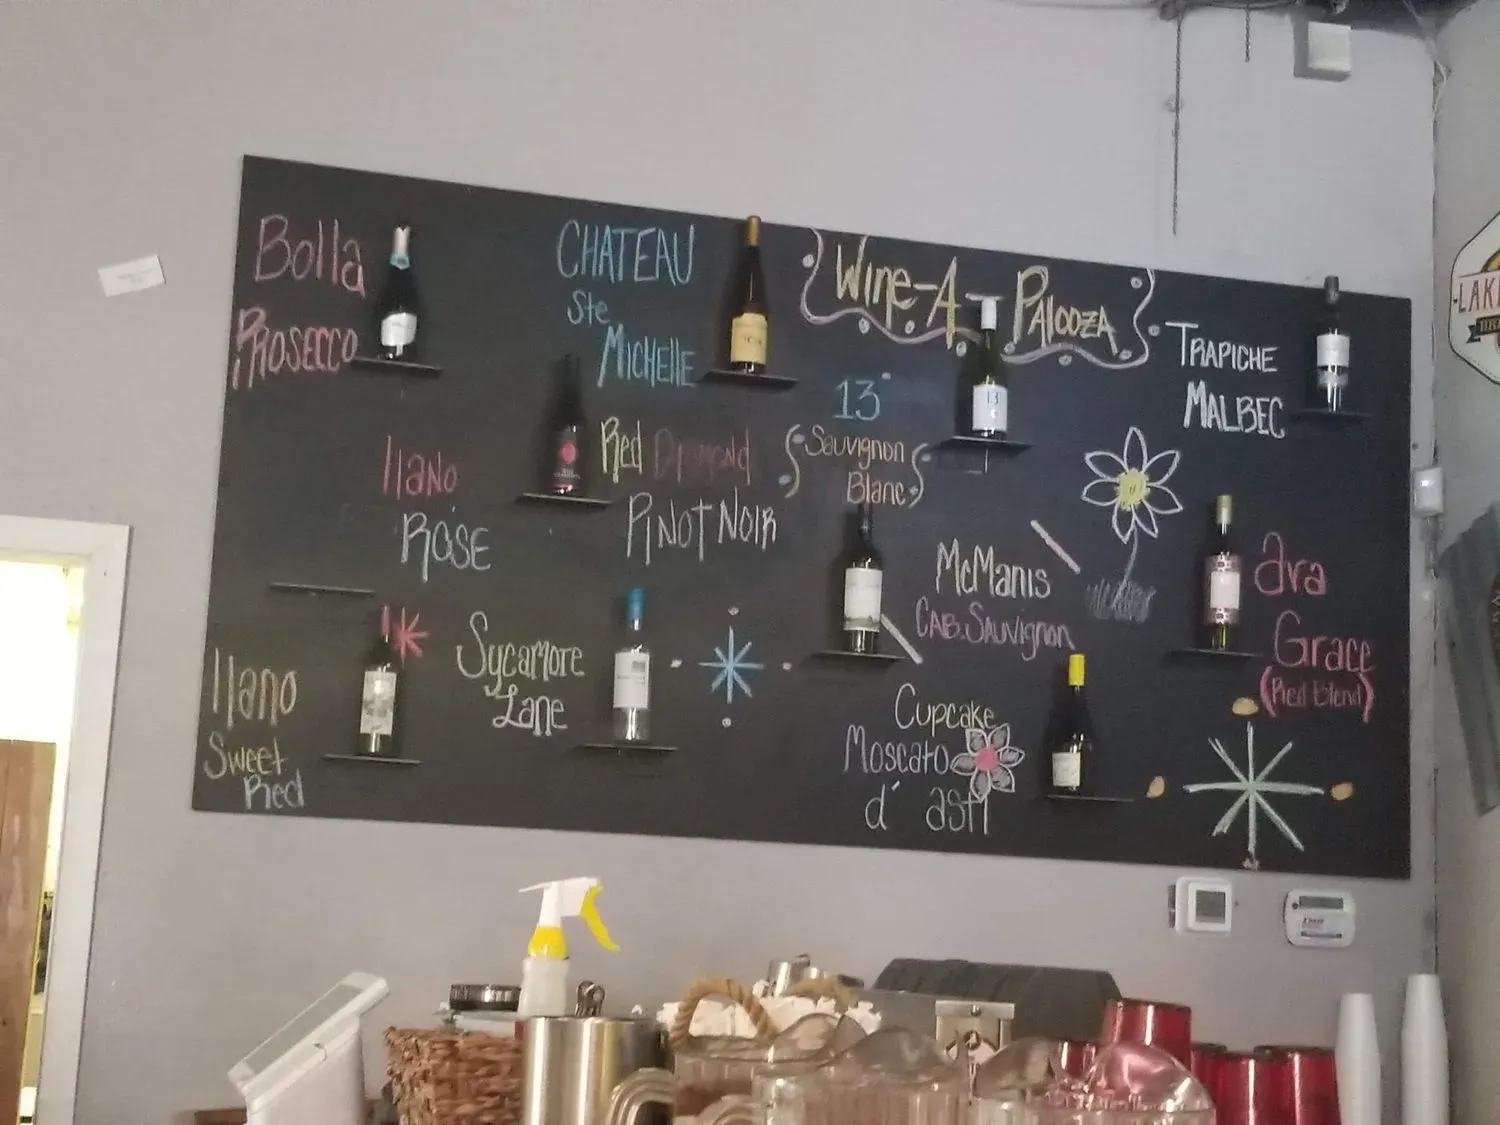 Bolla
Prosecco
CHATEAU
Ste
MICHELLE
Wine-A-Palooza
13°
Sauvignon
Blanc
13
TRAPICHE
MALBEC
llano
ROSE
Red Diamond
PINOT NOIR
McMANIS
CAB. SAUVIGNON
ava
Grace
(Red Blend)
llano
Sweet
Red
Sycamore
Lane
Cupcake
Moscato
d' asti
LAKE